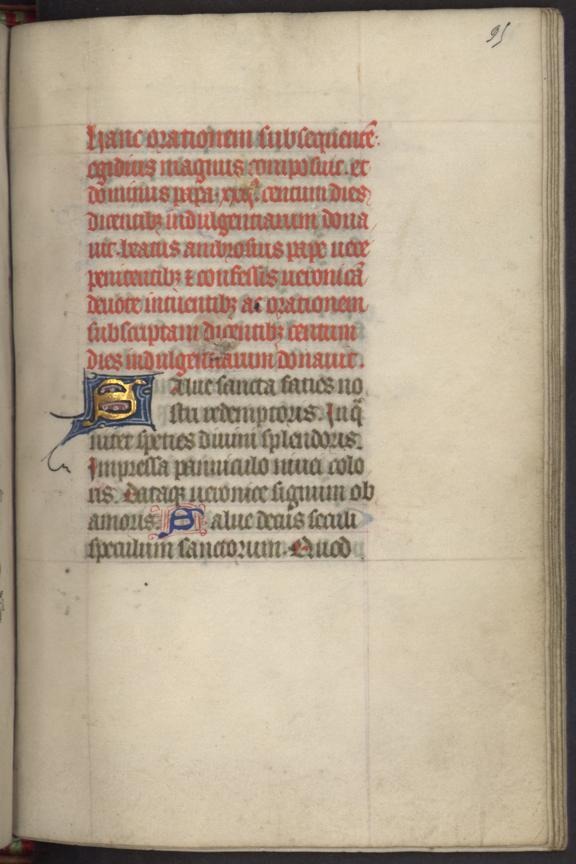 95
Hanc orationem subsequentē
egidius magnus composuit. et
dominus papa xxijꝰ centum dies
dicentibꝫ indulgentiarum dona
uit. beatus ambrosius pape uere
penitentibꝫ ⁊ confessis ueronicā
deuote intuentibꝫ ac orationem
subscriptam dicentibꝫ centum
dies indulgentiarum donauit.
Salue sancta facies no
stri redemptoris. In q̄
nitet species diuini splendoris.
Impressa panniculo niuei colo
ris. Dataqꝫ ueronice signum ob
amoris. Salue decus seculi
speculum sanctorum. Quod